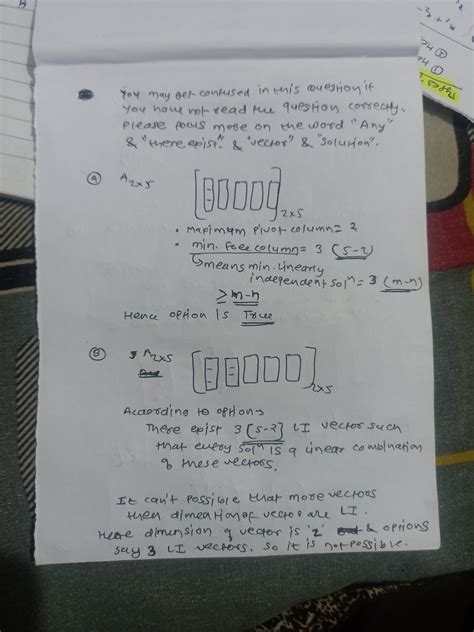 You may get confused in this question if
you have not read the question correctly.
Please focus more on the word "Any"
& "there exist" & "vector" & "solution".
Ⓐ A2×5 [ ]2×5
• Maximum pivot column = 2
• min. free column = 3 (5-2)
↳ means min. linearly
independent solⁿ = 3 (m-n)
≥ m-n
Hence option is True
Ⓑ A2×5 [ ]2×5
According to option→
There exist 3 [5-2] LI vector such
that every solⁿ is a linear combination
of these vectors.
It can't possible that more vectors
then dimention of vector are LI.
Here dimension of vector is '2' & options
say 3 LI vectors. So it is not possible.